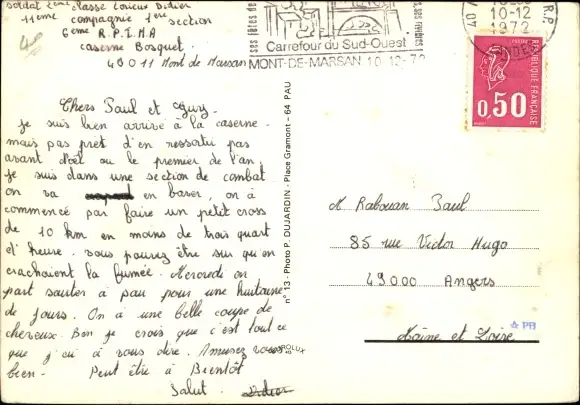 soldat 2ème classe Lorieux Didier
11ème compagnie 1ère section
6ème R.P.I.M.A
caserne Bosquet
40011 Mont de Marsan
Carrefour du Sud-Ouest
MONT-DE-MARSAN 10-12-72
10-12
1972
REPUBLIQUE FRANÇAISE
0,50
Chers Paul et
je suis bien arrivé à la caserne.
mais pas prêt d'en ressortir pas
avant Noël ou le premier de l'an.
je suis dans une section de combat
on va en baver, on à
commencé par faire un petit cross
de 10 km en moins de trois quart
d'heure. vous pouvez être sur qu'on
crachaient la fumée. Mercredi on
part sauter à pau pour une huitaine
de jours. On à une belle coupe de
cheveux. Bon je crois que c'est tout ce
que j'ai à vous dire. Amusez vous
bien. Peut être à Bientôt
Salut. Didier
n° 13 - Photo P. DUJARDIN - Place Gramont - 64 PAU
M Rabouan Paul
85 rue Victor Hugo
49000 Angers
Maine et Loire
PB